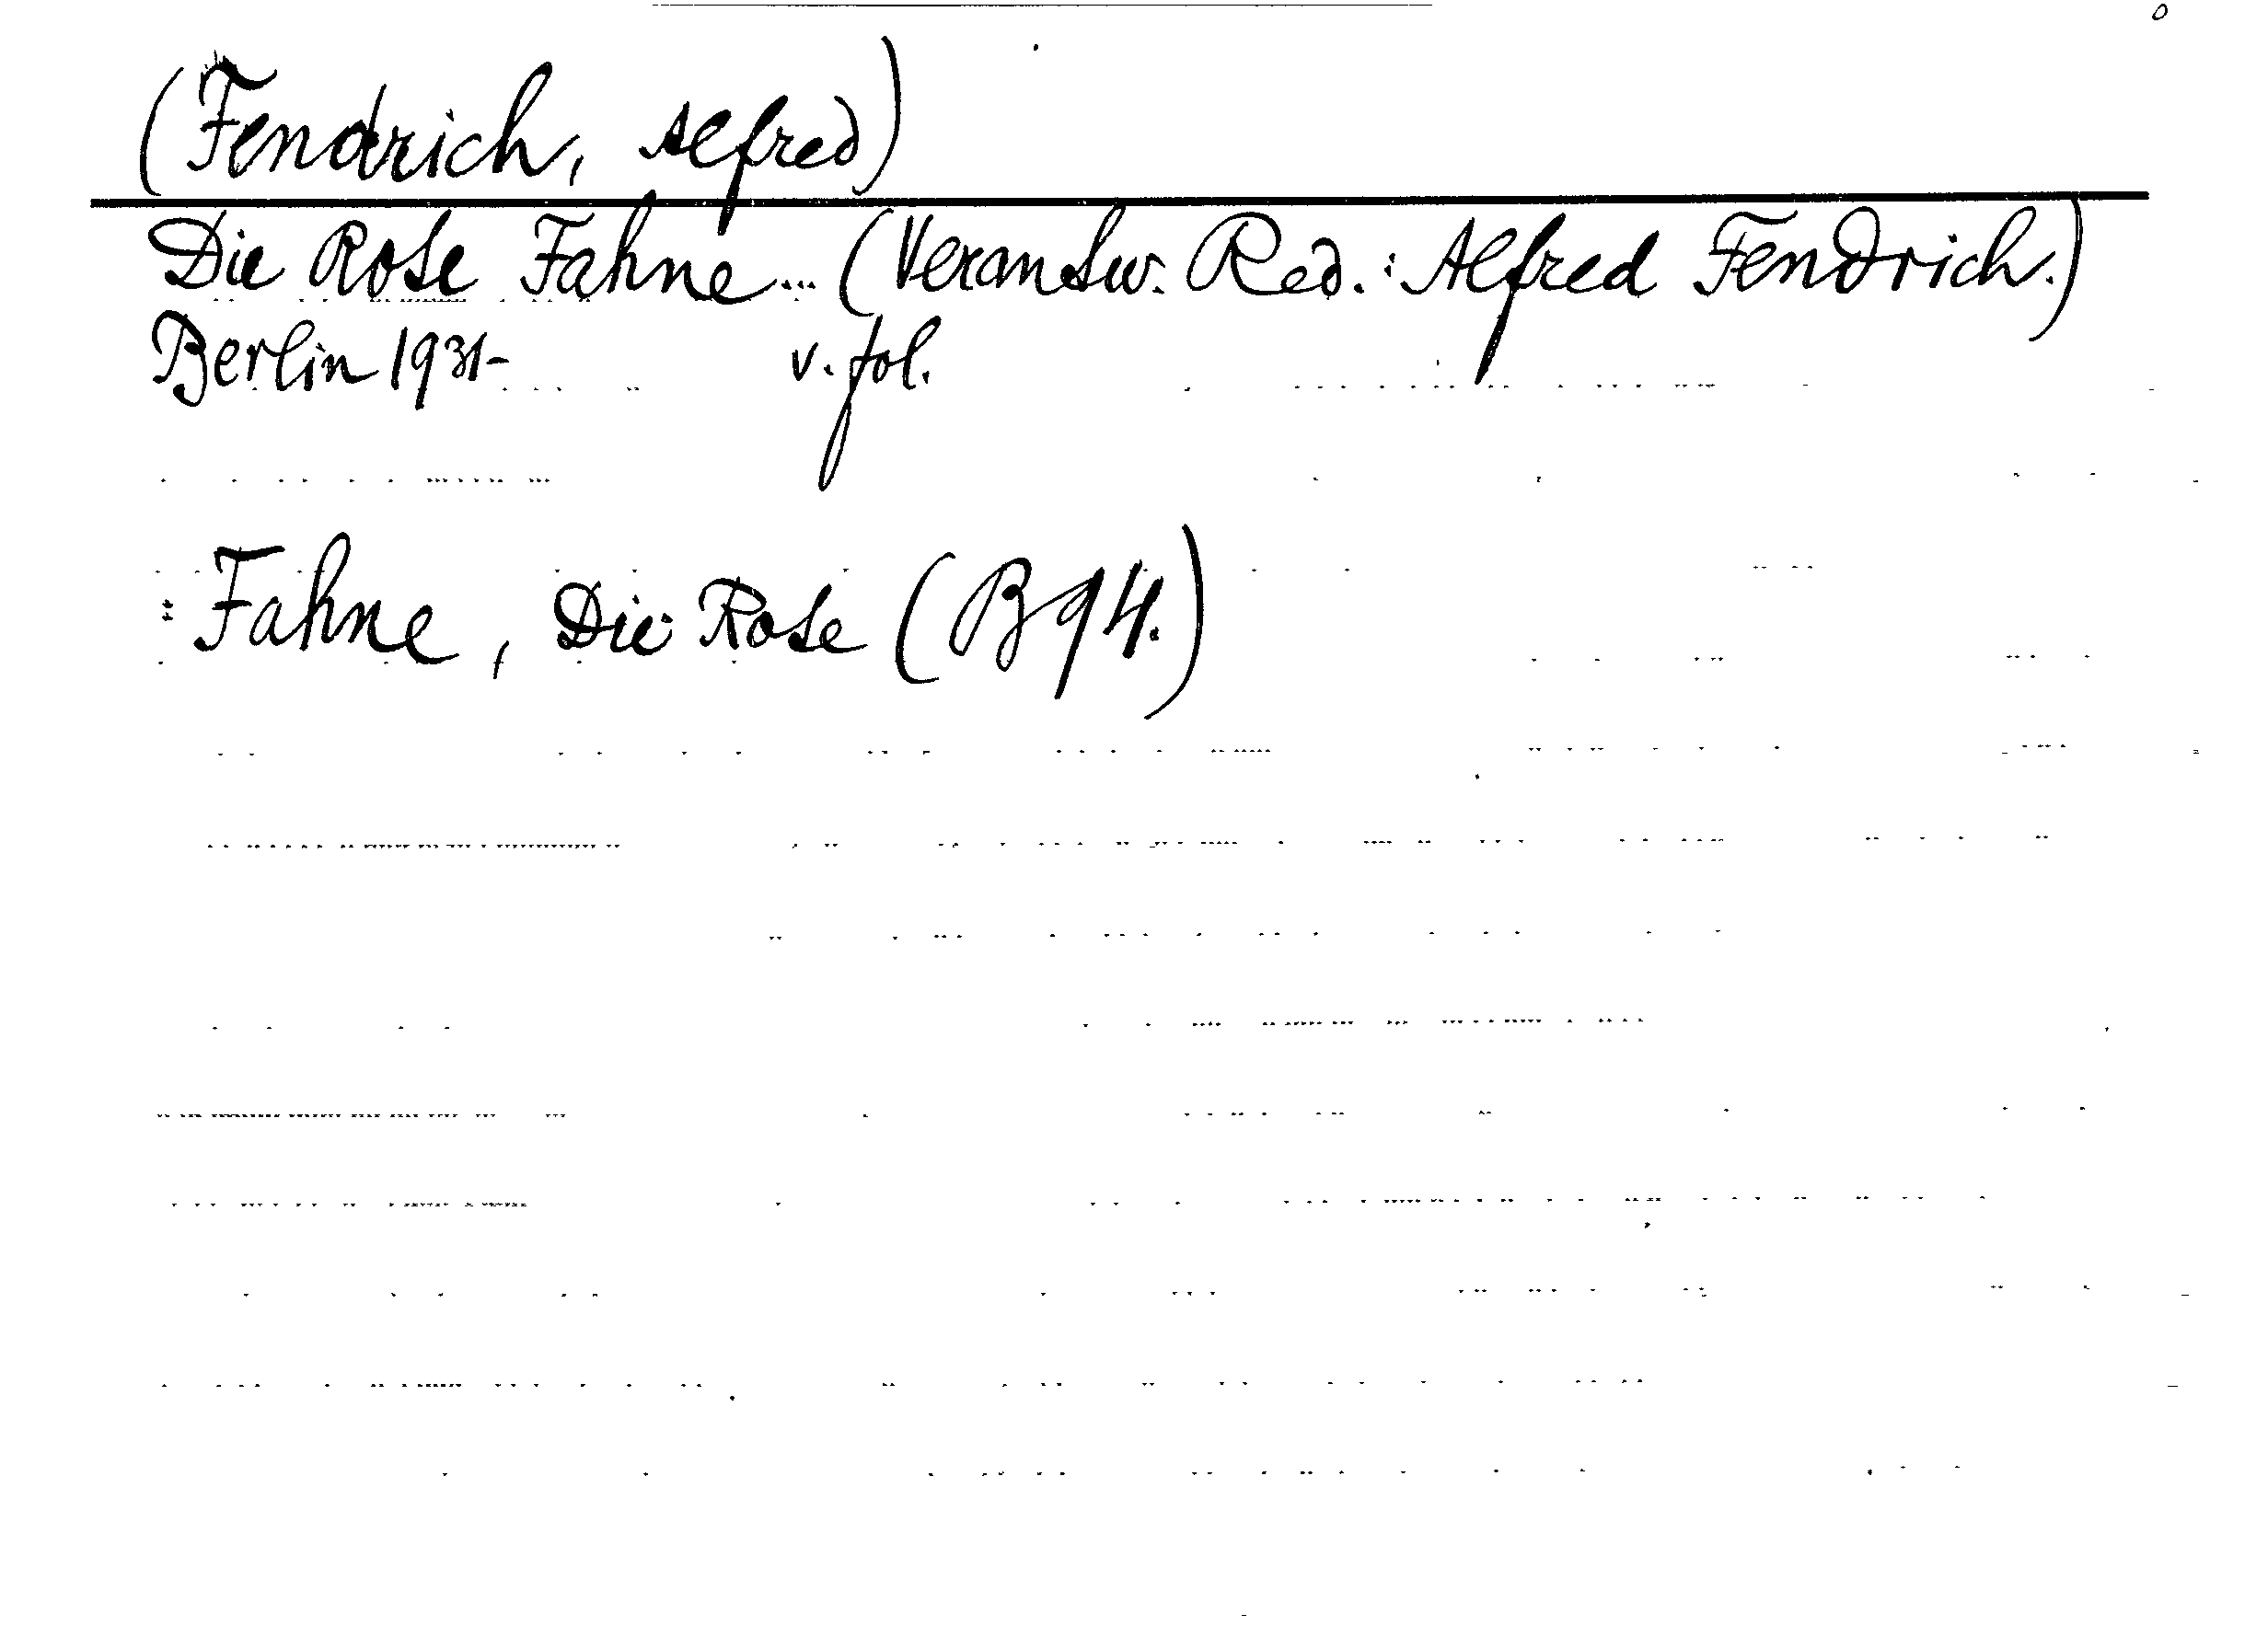 (Fendrich, Alfred)
Die Rote Fahne... (Verantw. Red.: Alfred Fendrich.)
Berlin 1931- v. fol.
: Fahne, Die Rote (B94.)